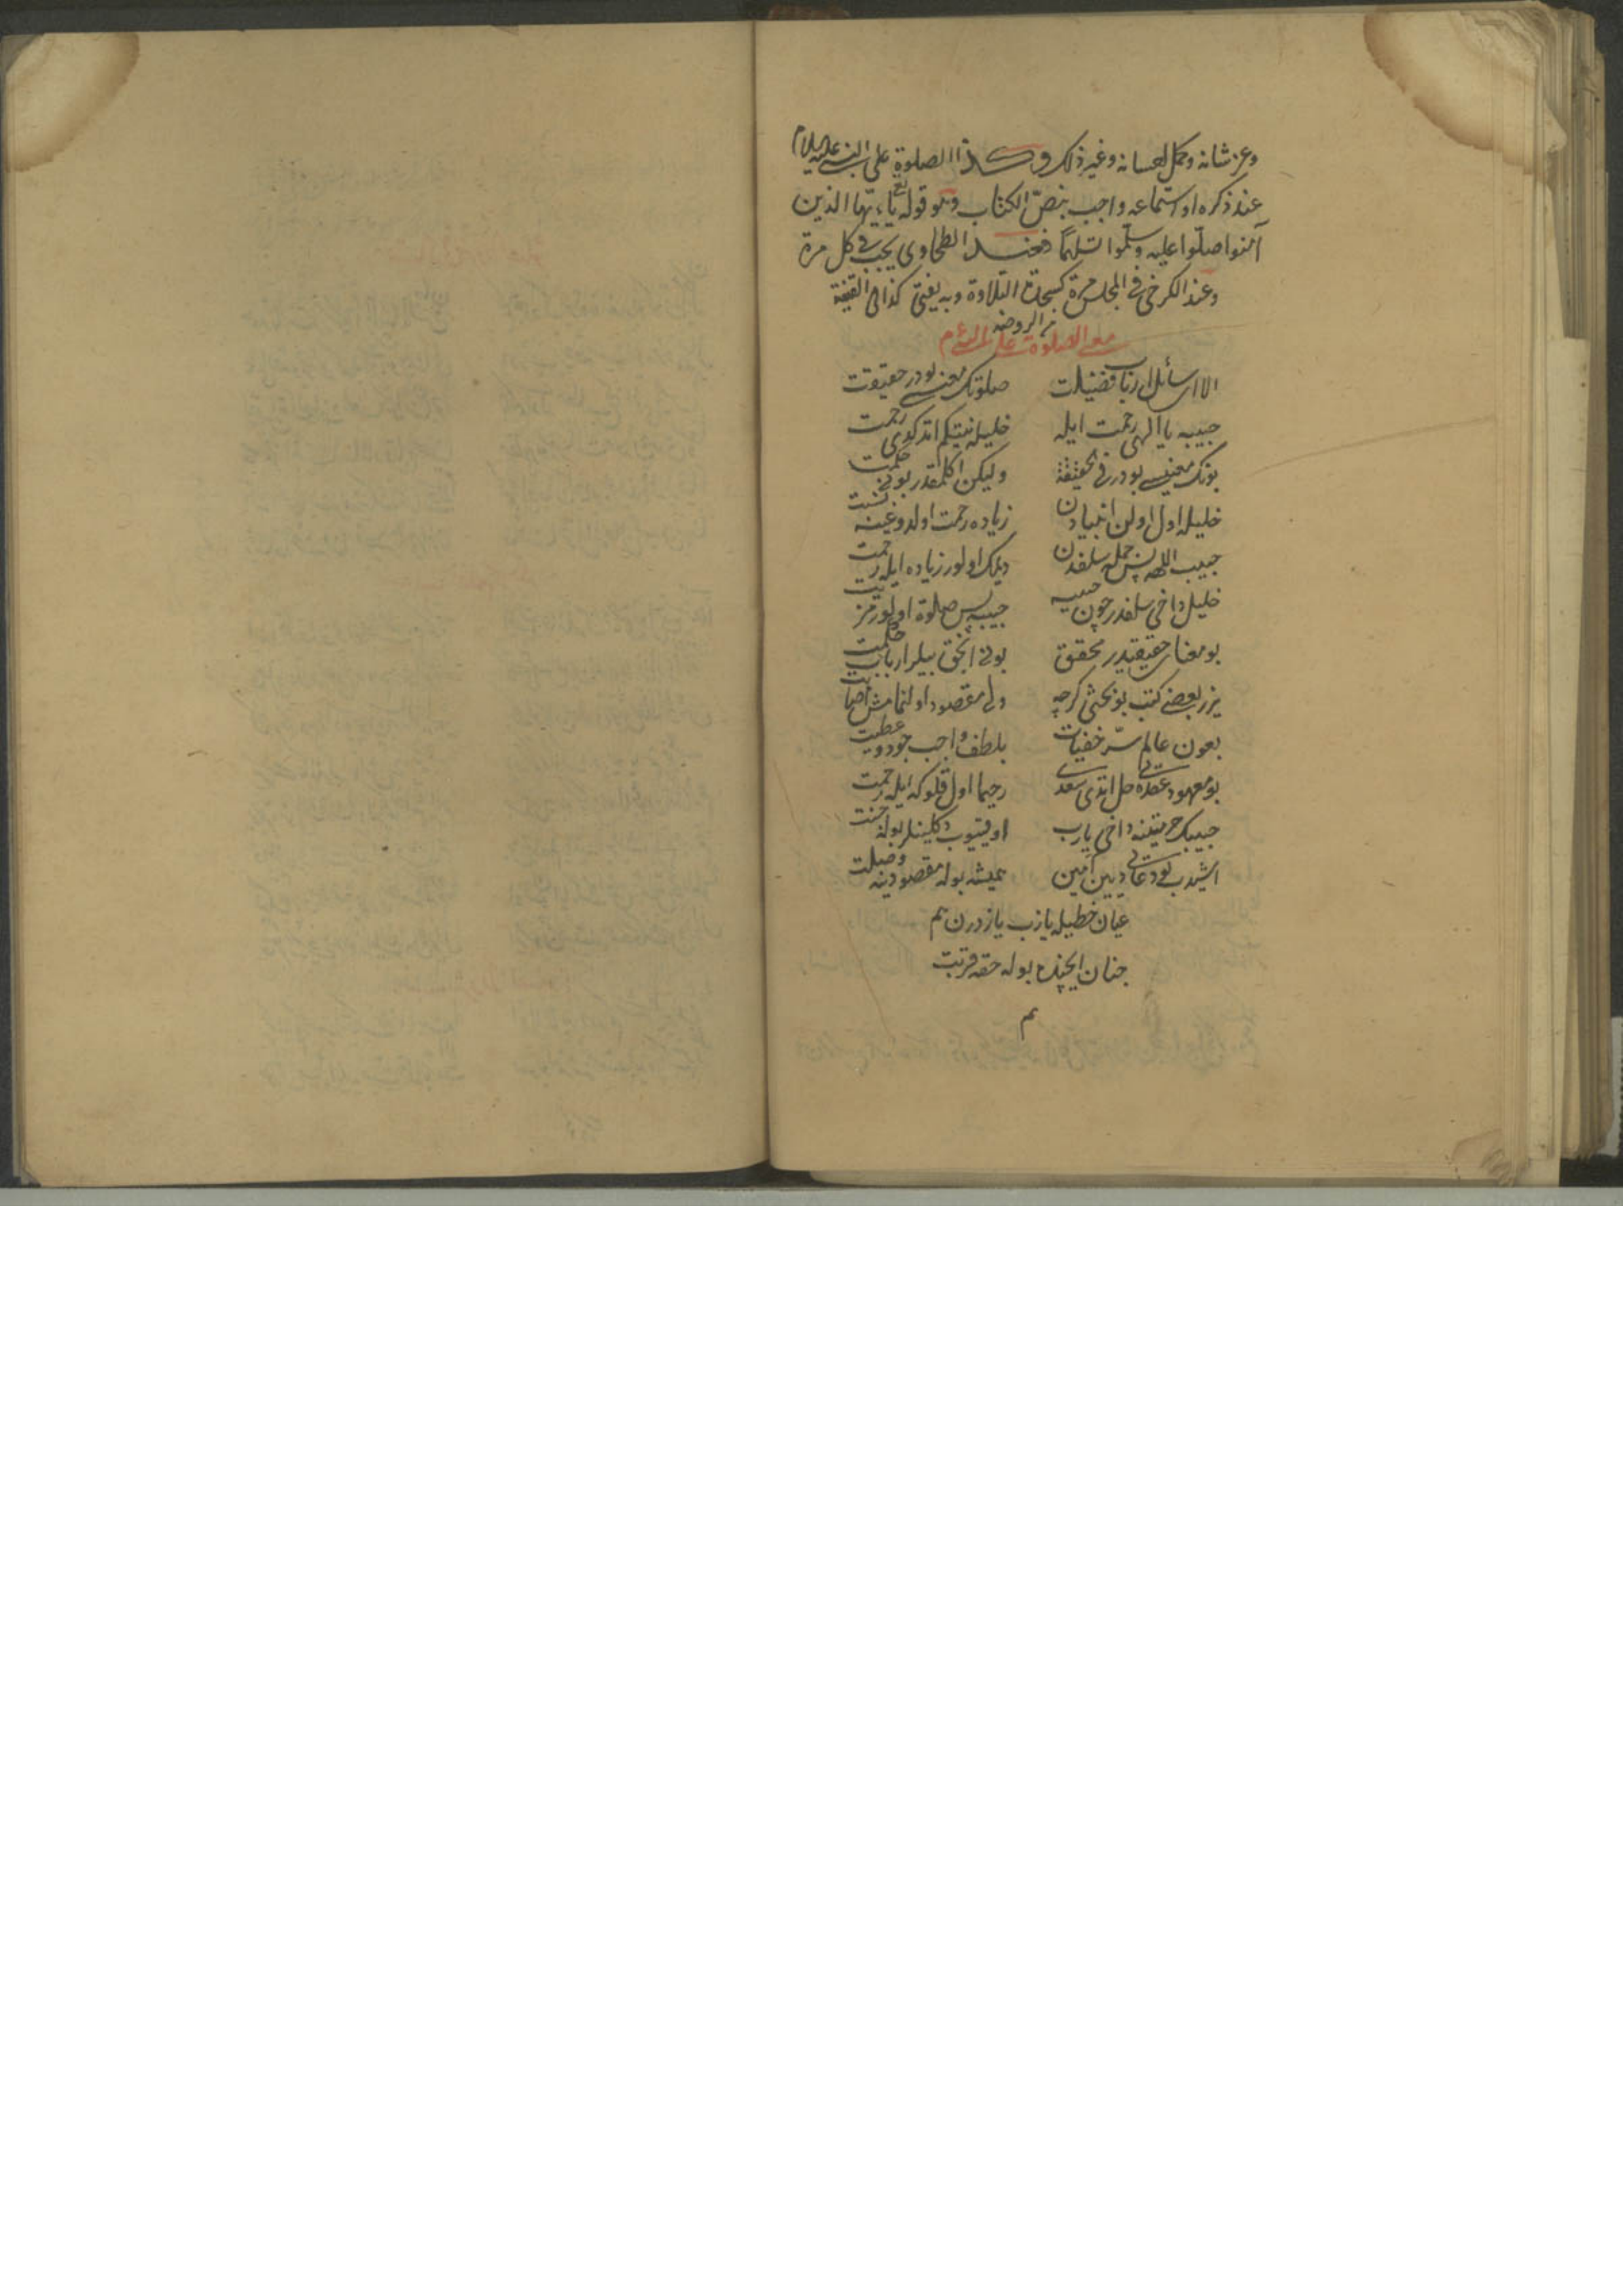 وعز شانه وكمل احسانه وغير ذلك وكذا الصلوة على النبى عليه السلام
عند ذكره او استماعه واجب بنص الكتاب وهو قوله تع يا ايها الذين
آمنوا صلّوا عليه وسلّموا تسليماً فعند الطحاوى يجب فى كل مرة
وعند الكرخى فى المجلس مرة كسجدة التلاوة وبه يفتى كذا فى القنية
من الروضه
معنى الصلوة على النبى ءم
الا اى سائل ارباب فضيلت صلوتك معنيسى بودر حقيقت
حبيبه يا الهى رحمت ايله خليله نيتكم اتدكدى رحمت
بونك معنيسى بودر فى الحقيقة وليكن اكلمقدر بونى حكمت
خليله اول اولن انبيادن زياده رحمت اولدوغينه نسبت
حبيب اللهه پس جمله سلفدن ديمك اولور زياده ايله رحمت
خليل داخى سلفدر چون حبيبه حبيبه پس صلوة اولور
بو معناى حقيقيدر محقق بونى انجق بيلر ارباب حكمت
يزر بعضى كتب بو بحثى كرچه ولى مقصود اولنمامش
بعون عالم سرّ خفيات بلطف واجب جود و عطيت
بو معهود عقده يى حل اتدى سعدى رحيما اول قلوكه ايله رحمت
حبيبك حرمتنه داخى يا رب اوقيوب دكلينلر بوله جنت
اشيدب بو دعايى ديين آمين هميشه بوله مقصودينه وصلت
عيان خطيله يازب يازدرن هم
جنان ايچنده بوله حقه قربت
تم